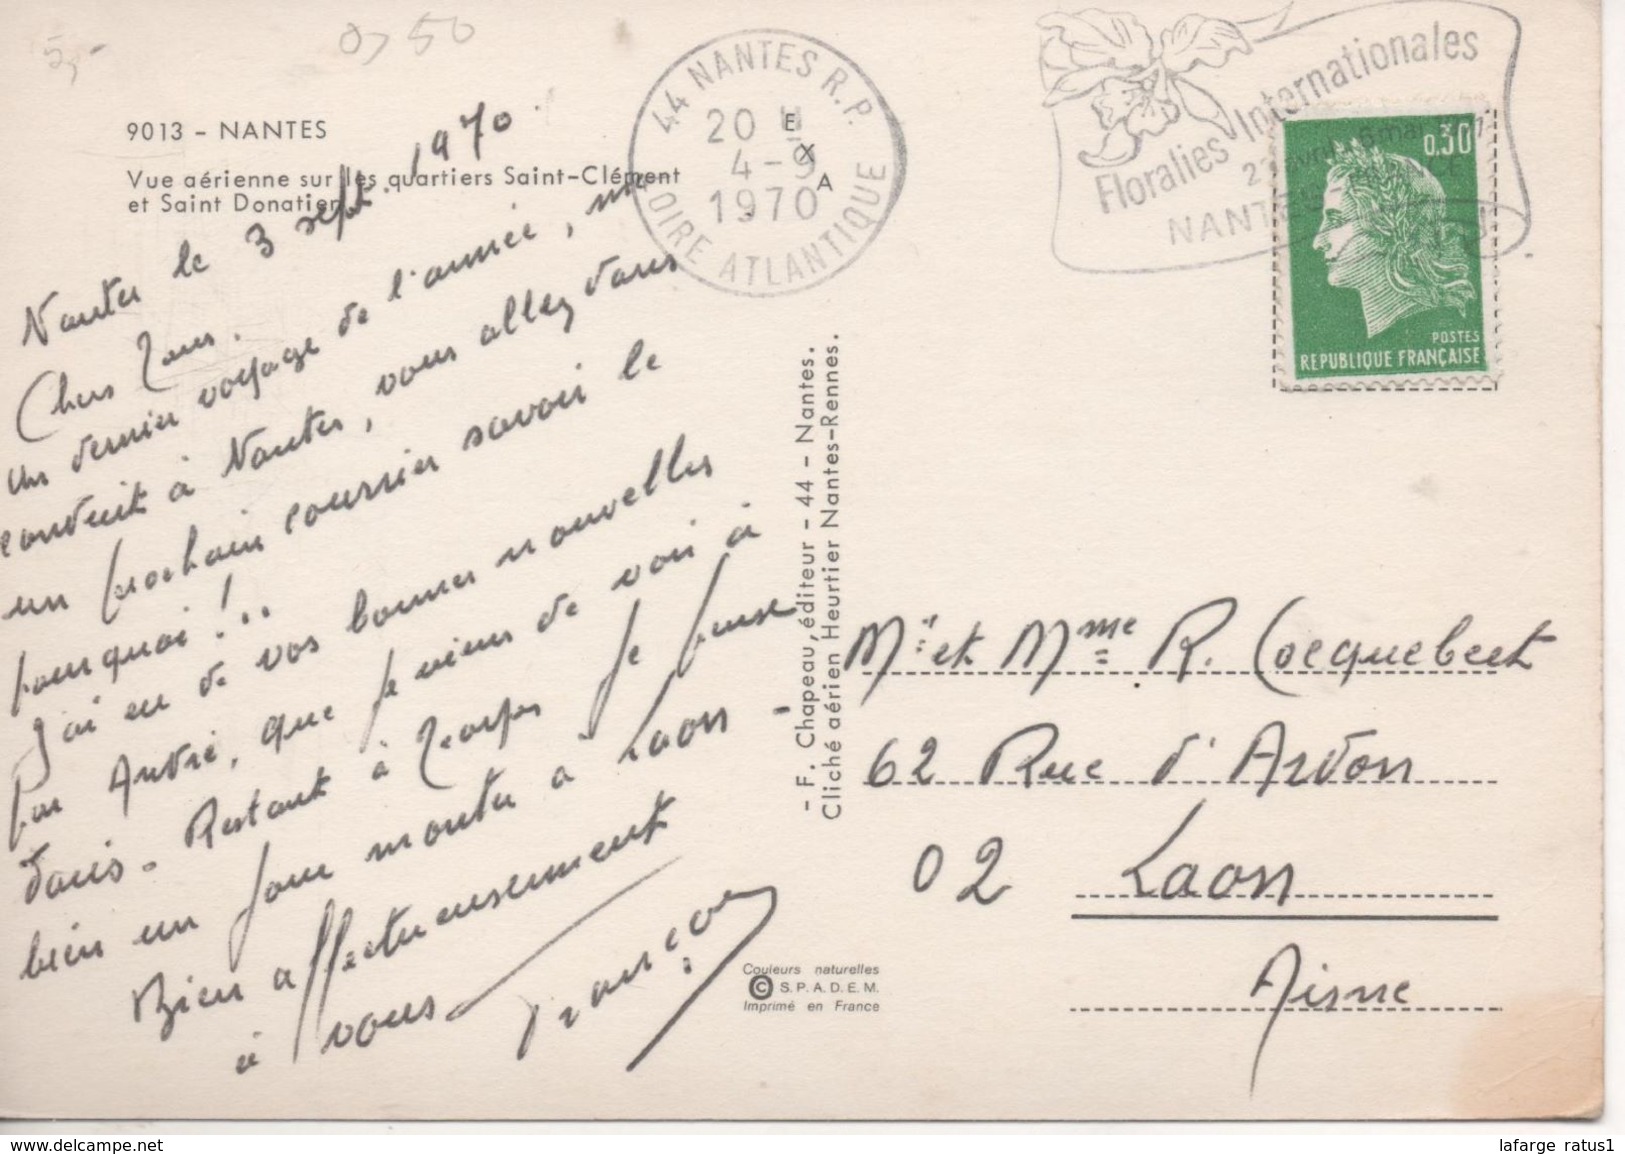 5,-
0,50
9013 - NANTES
Vue aérienne sur les quartiers Saint-Clément
et Saint Donatien
Nantes le 3 sept. 1970.
Chers Tous.
Un dernier voyage de l'année, me
conduit à Nantes, vous allez dans
un prochain courrier savoir le
pourquoi !..
J'ai eu de vos bonnes nouvelles
par André, que je viens de voir à
Restant à je pense
bien un jour monter à Laon -
Bien affectueusement
à vous
François
44 NANTES R.P.
20 H
4-9
1970
LOIRE ATLANTIQUE
EXA
Floralies Internationales
NANTES
0,30
POSTES
REPUBLIQUE FRANÇAISE
- F. Chapeau, éditeur - 44 - Nantes.
Cliché aérien Heurtier Nantes-Rennes.
Mr et Mme R. Cocquebert
62 Rue d'Ardon
02 Laon
Aisne
Couleurs naturelles
© S.P.A.D.E.M.
Imprimé en France
www.delcampe.net
lafarge ratus1